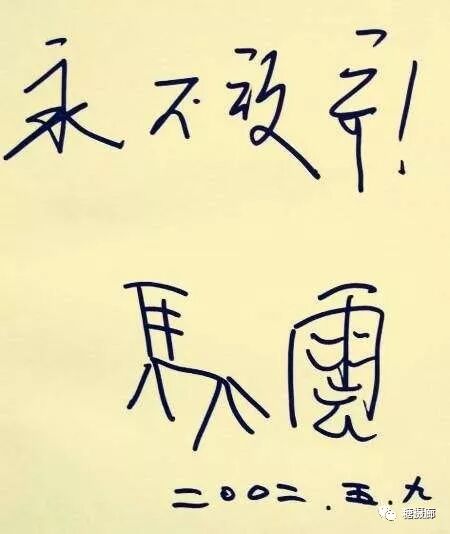 永不放弃!
馬雲
二〇〇二.五.九
糖摄廊